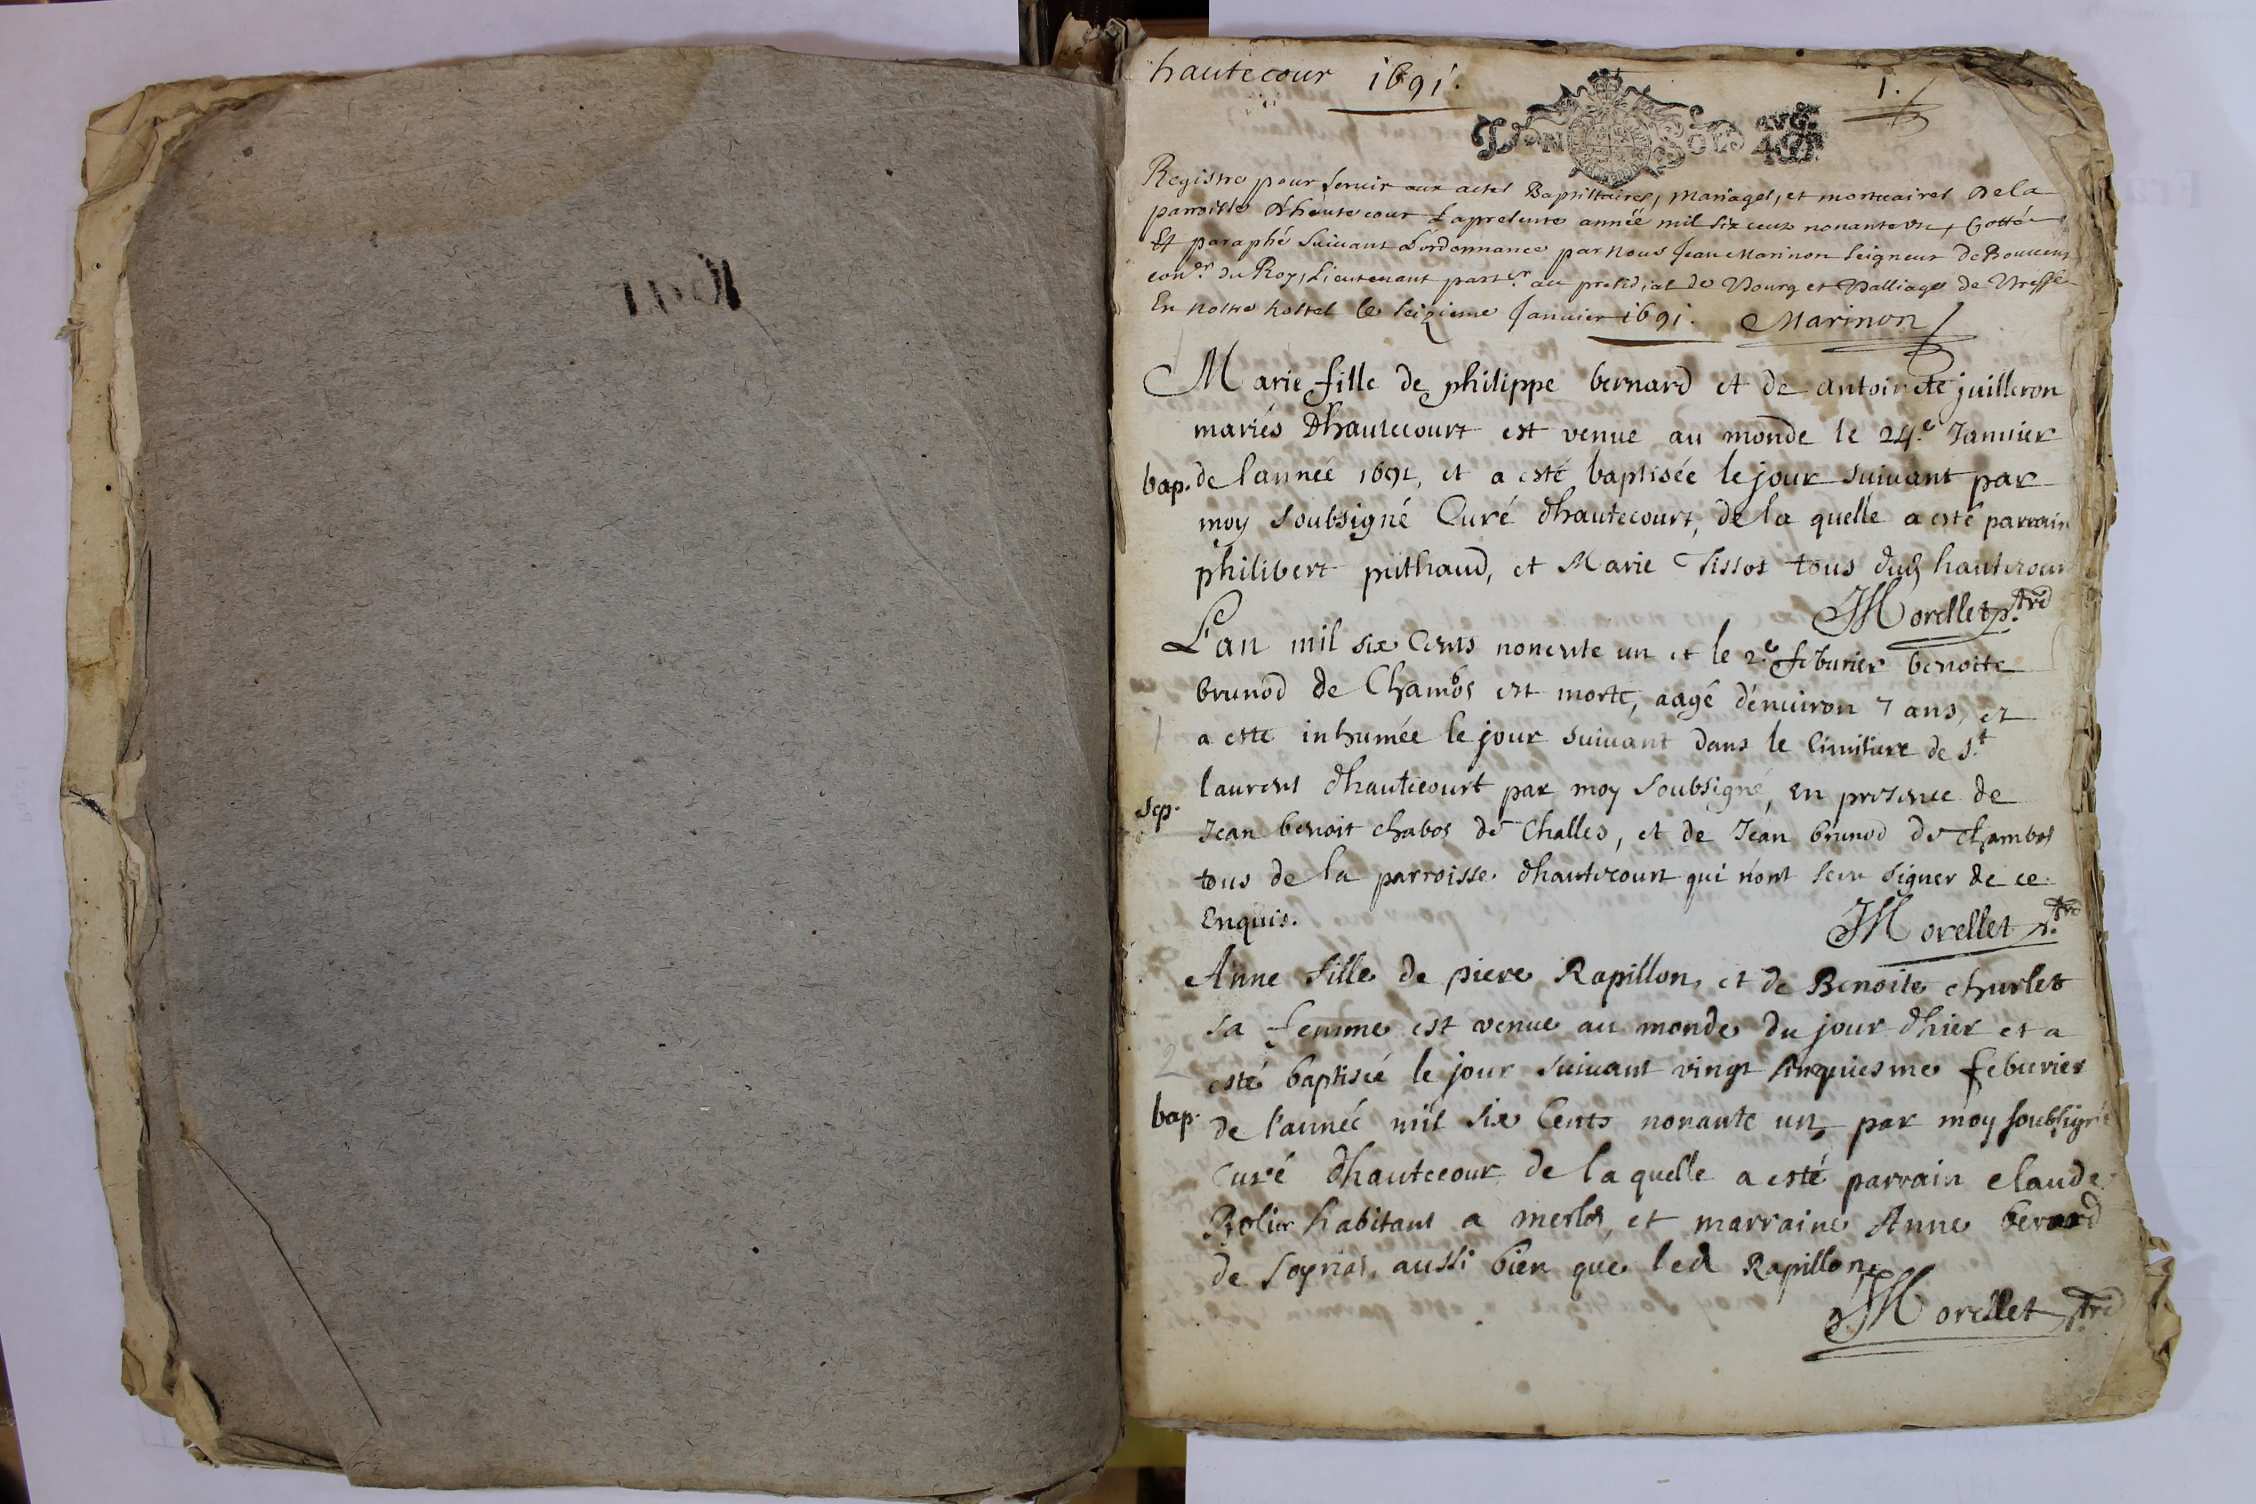 1691
hautecour 1691.
1.
Registre pour servir aux actes Baptistaires, mariages, et mortuaires De la
parroisse d'hautecour La presente année mil six cens nonante un, Cotté
Et paraphé suivant L'ordonnance par Nous Jean Marinon seigneur de
conr. du Roy, Lieutenant partr. au presidial de Bourg et Balliage de Bresse
En nostre hostel le seizieme Janvier 1691. Marinon
Marie fille de philippe bernard et de antoinete juilleron
mariés dhautecourt est venue au monde le 24.e Januier
bap. de l'année 1691, et a esté baptisée le jour suiuant par
moy soubsigné Curé dhautecourt, de la quelle a esté parrain
philibert puthaud, et Marie Tissot tous dud hautecour
JMorellet ptre
L'an mil six Cents nonente un et le 2.e feburier benoite
brunod de Chambos est morte, aagé d'enuiron 7 ans, et
a esté inhumée le jour suiuant dans le Cimitiere de St
laurent dhautecourt par moy soubsigné, en presence de
sep.
Jean benoit chabos de Challes, et de Jean brunod de Chambos
tous de la parroisse dhautecourt qui n'ont sceu signer de ce
Enquis.
JMorellet ptre
Anne fille de piere Rapillon, et de Benoite churlet
sa femme est venue au monde du jour dhier et a
2
esté baptisée le jour suiuant vingt cinquiesme feburier
bap. de l'année mil six Cents nonante un, par moy soubsigné
Curé dhautecour de la quelle a esté parrain claude
habitant a merlos, et marraine Anne berard
de soyrias, aussi bien que led Rapillon.
JMorellet ptre